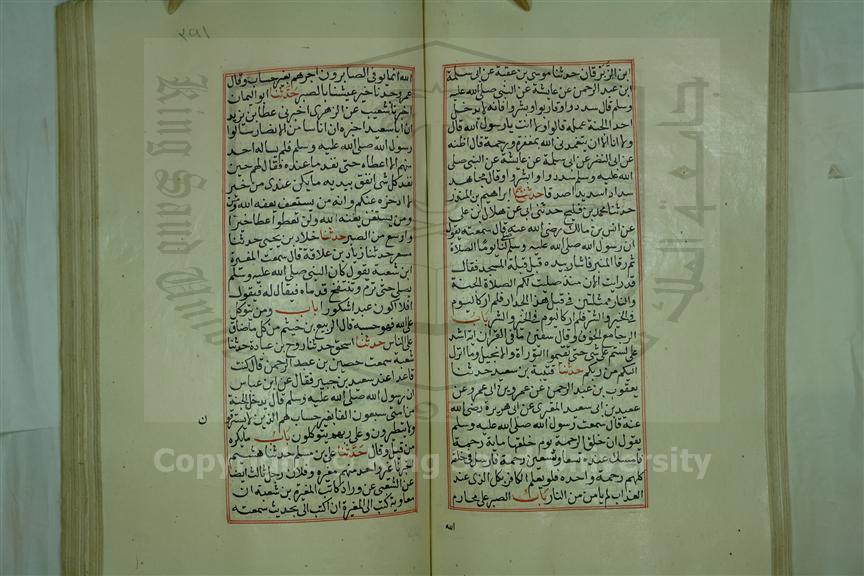 ابن الزبرقان حدثنا موسى بن عقبة عن ابى سلمة
ابن عبد الرحمن عن عايشة عن النبى صلى الله عليه
وسلم قال سددوا وقاربوا وابشروا فانه لا يدخل
احد الجنة عمله قالوا ولا انت يا رسول الله قال
ولا انا الا ان يتغمدنى الله بمغفرة ورحمة قال اظنه
عن ابى النضر عن ابى سلمة عن عايشة عن النبى صلى
الله عليه وسلم سددوا وابشروا وقال مجاهد
سدادا سديدا صدقا حدثنى ابراهيم بن المنذر
حدثنا محمد بن فليح حدثنى ابى عن هلال بن على
عن انس بن مالك رضى الله عنه قال سمعته يقول
ان رسول الله صلى الله عليه وسلم صلى لنا يوما الصلاة
ثم رقا المنبر فاشار بيده قبل قبلة المسجد فقال
قد رايت الان منذ صليت لكم الصلاة الجنة
والنار ممثلتين فى قبل هذا الجدار فلم ار كاليوم
فى الخير والشر فلم ار كاليوم فى الخير والشر باب
الرجا مع الخوف وقال سفين ما فى القران اية اشد
على لستم على شى حتى تقيموا التوراة والانجيل وما انزل
اليكم من ربكم حدثنا قتيبة بن سعيد حدثنا
يعقوب بن عبد الرحمن عن عمرو بن ابى عمرو عن
سعيد بن ابى سعيد المقبرى عن ابى هريرة رضى الله
عنه قال سمعت رسول الله صلى الله عليه وسلم
يقول ان خلق الرحمة يوم خلقها ماية رحمة
فامسك عنده تسعا وتسعين رحمة وارسل فى خلقه
كلهم رحمة واحدة فلو يعلم الكافر بكل الذى عند
العذاب لم يامن من النار باب الصبر على محارم
الله
الله انما يوفى الصابرون اجرهم بغير حساب وقال
عمر وجدنا خير عيشنا بالصبر حدثنا ابو اليمان
اخبرنا شعيب عن الزهرى اخبرنى عطا بن يزيد
ان ابا سعيد اخبره ان اناسا من الانصار سالوا
رسول الله صلى الله عليه وسلم فلم يساله احد
منهم الا اعطاه حتى نفد ما عنده فقال لهم حين
نفد كل شى انفق بيديه ما يكن عندى من خير
لا ادخره عنكم وانه من يستعف يعفه الله
ومن يستغن يغنه الله ولن تعطوا عطا خيرا
واوسع من الصبر حدثنا خلاد بن يحيى حدثنا
مسعر حدثنا زياد بن علاقة قال سمعت المغيرة
ابن شعبة يقول كان النبى صلى الله عليه وسلم
يصلى حتى ترم وتنتفخ قدماه فيقال له فيقول
افلا اكون عبدا شكورا باب ومن يتوكل
على الله فهو حسبه قال الربيع بن خثيم من كل ما ضاق
على الناس حدثنا اسحق حدثنا روح بن عبادة حدثنا
شعبة سمعت حصين بن عبد الرحمن قال كنت
قاعدا عند سعيد بن جبير فقال عن ابن عباس
ان رسول الله صلى الله عليه وسلم قال يدخل الجنة
من امتى سبعون الفا بغير حساب هم الذين لا يسترقون
ولا يتطيرون وعلى ربهم يتوكلون باب ما يكره
من قيل وقال حدثنا على بن مسلم حدثنا هشيم
اخبرنا غير واحد منهم مغيرة وفلان ورجل ثالث ايضا
عن الشعبى عن وراد كاتب المغيرة بن شعبة ان
معاوية كتب الى المغيرة ان اكتب الى بحديث سمعته
Copyright © King Saud University